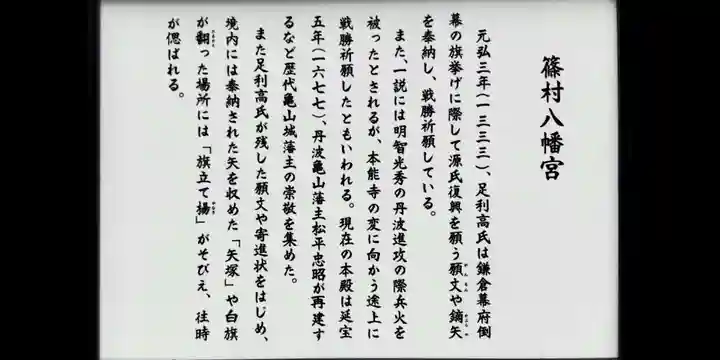 篠村八幡宮
元弘三年(一三三三)、足利高氏は鎌倉幕府倒
幕の旗挙げに際して源氏復興を願う願文や鏑矢
を奉納し、戦勝祈願している。
また、一説には明智光秀の丹波進攻の際兵火を
被ったとされるが、本能寺の変に向かう途上に
戦勝祈願したともいわれる。現在の本殿は延宝
五年(一六七七)、丹波亀山藩主松平忠昭が再建す
るなど歴代亀山城藩主の崇敬を集めた。
また足利高氏が残した願文や寄進状をはじめ、
境内には奉納された矢を収めた「矢塚」や白旗
が翻った場所には「旗立て楊」がそびえ、往時
が偲ばれる。